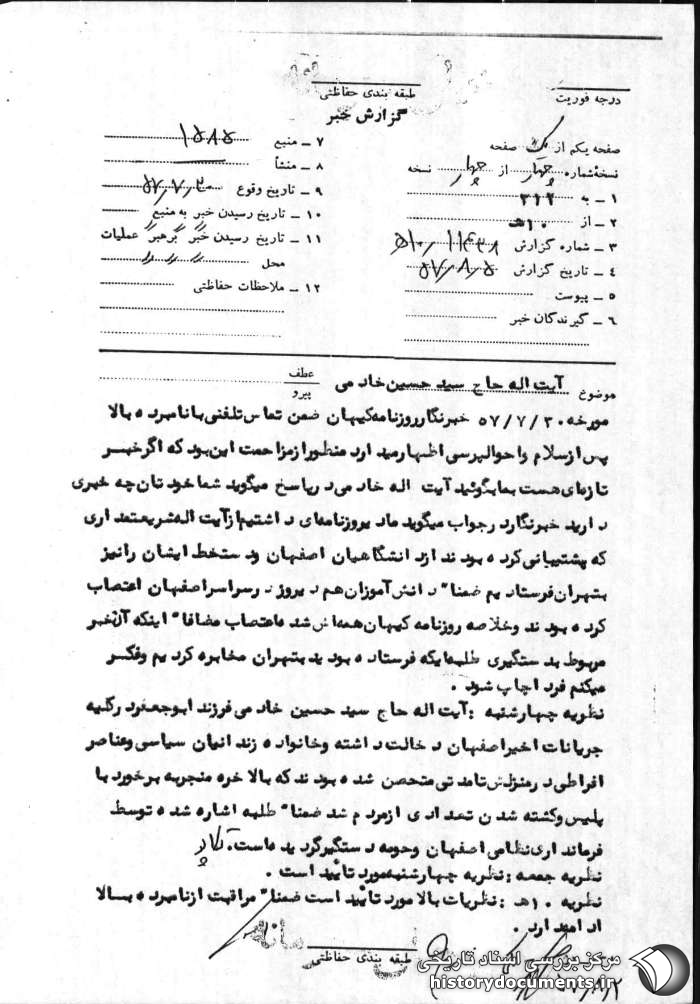 طبقه بندی حفاظتی
درجه فوریت
گزارش خبر
صفحه یکم از یک صفحه
نسخه شماره چهار از چهار نسخه
۱ ـ به ۳۱۲
۲ ـ از ۱۰هـ
۳ ـ شماره گزارش
۴ ـ تاریخ گزارش ۵۷/۸/۵
۵ ـ پیوست
۶ ـ گیرندگان خبر
۷ ـ منبع ۱۵۸۵
۸ ـ منشأ
۹ ـ تاریخ وقوع ۵۷/۷/۳۰
۱۰ ـ تاریخ رسیدن خبر به منبع
۱۱ ـ تاریخ رسیدن خبر به رهبر عملیات
محل
۱۲ ـ ملاحظات حفاظتی
موضوع آیت اله حاج سید حسین خادمی
عطف
پیرو
مورخه ۵۷/۷/۳۰ خبرنگار روزنامه کیهان ضمن تماس تلفنی با نامبرده بالا
پس از سلام و احوالپرسی اظهار میدارد منظور از مزاحمت این بود که اگر خبر
تازه‌ای هست بما بگوئید آیت اله خادمی در پاسخ میگوید شما خودتان چه خبری
دارید خبرنگار در جواب میگوید ما دیروز نامه‌ای داشتیم از آیت اله شریعتمداری
که پشتیبانی کرده بودند از دانشگاهیان اصفهان و دستخط ایشان را نیز
بتهران فرستادیم ضمنا" دانش آموزان هم دیروز در سراسر اصفهان اعتصاب
کرده بودند و خلاصه روزنامه کیهان همه‌اش شده اعتصاب مضافا" اینکه آن خبر
مربوط بدستگیری طلبه‌ایکه فرستاده بودید بتهران مخابره کردیم و فکر
میکنم فردا چاپ شود.
نظریه چهارشنبه : آیت اله حاج سید حسین خادمی فرزند ابوجعفر در کلیه
جریانات اخیر اصفهان دخالت داشته و خانواده زندانیان سیاسی و عناصر
افراطی در منزلش تا مدتی متحصن شده بودند که بالاخره منجر به برخورد با
پلیس و کشته شدن تعدادی از مردم شد ضمنا" طلبه اشاره شده توسط
فرمانداری نظامی اصفهان و حومه دستگیر گردیده است.
نظریه جمعه : نظریه چهارشنبه مورد تأیید است .
نظریه ۱۰هـ : نظریات بالا مورد تأیید است ضمنا" مراقبت از نامبرده بالا
ادامه دارد .
طبقه بندی حفاظتی
مرکز بررسی اسناد تاریخی
historydocuments.ir